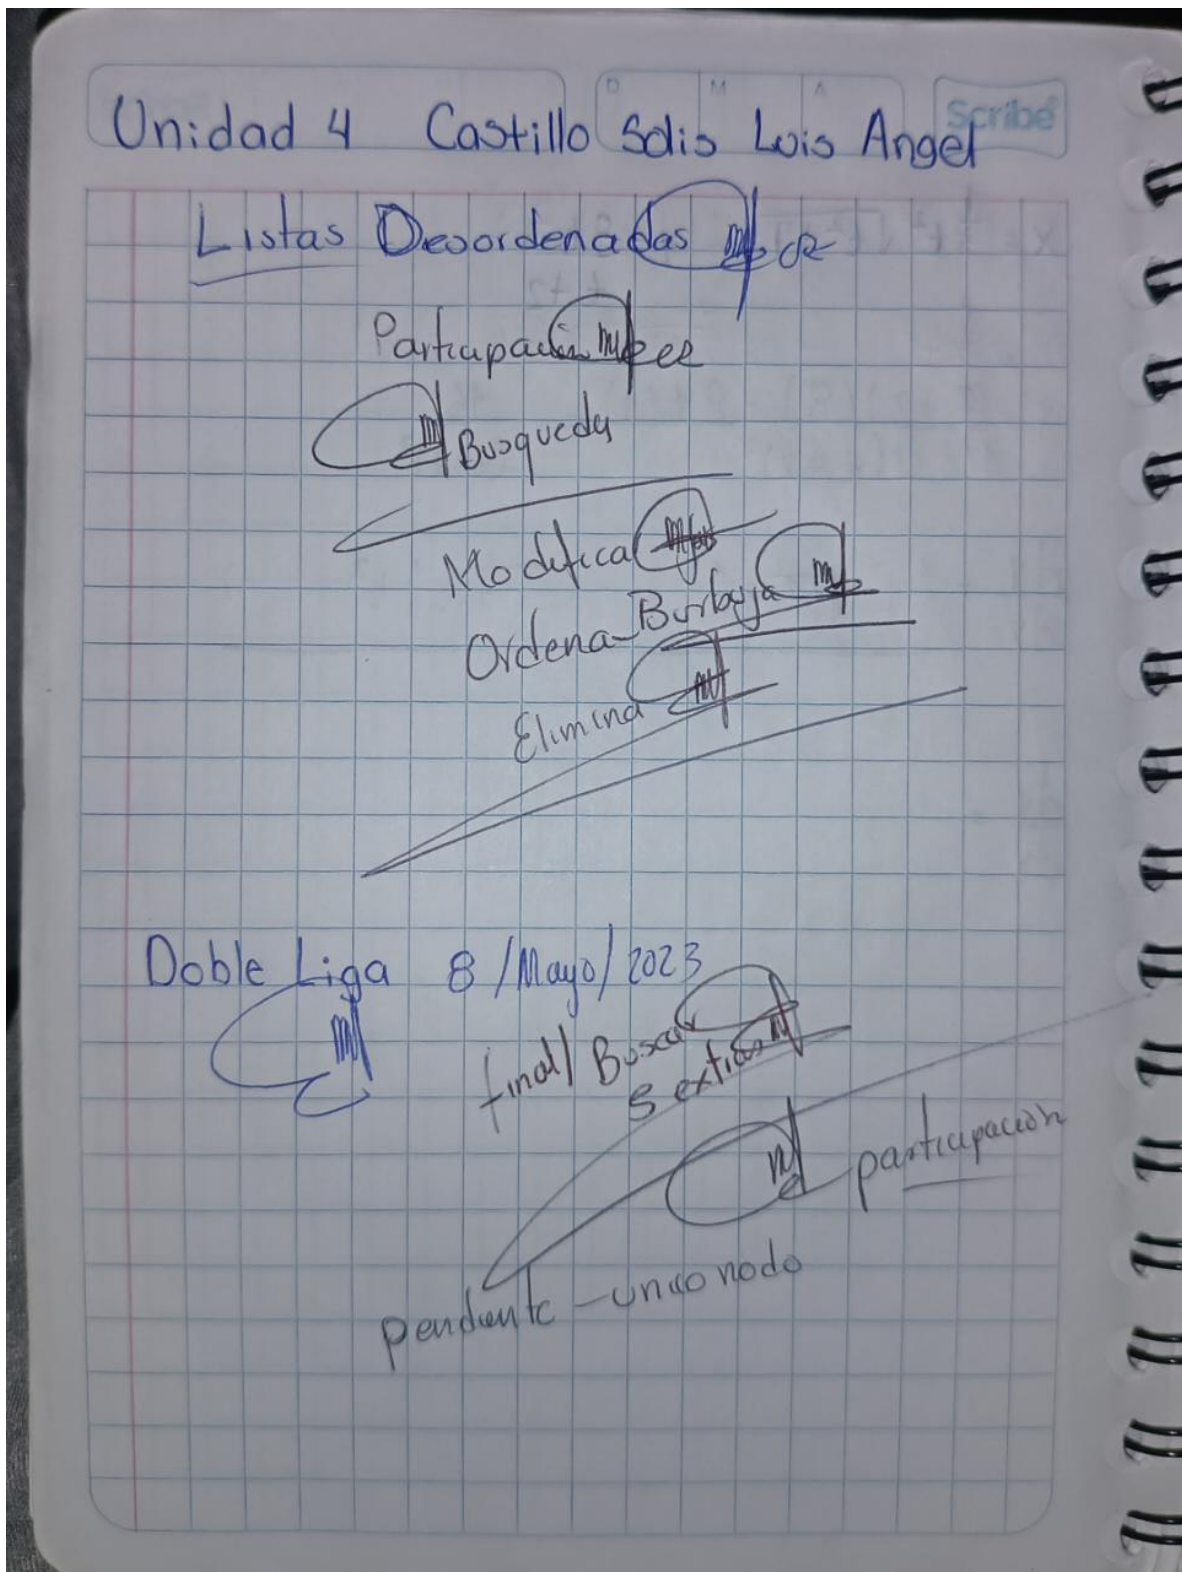 D M A
Scribe
Unidad 4 Castillo Solis Luis Angel
Listas Desordenadas
Participación
Busqueda
Modifica
Ordena-Burbuja
Elimina
Doble Liga 8/Mayo/2023
final/Buscar
participación
pendiente - unico nodo